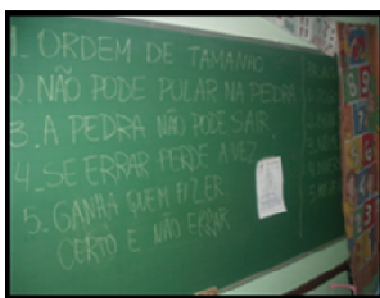 1. ORDEM DE TAMANHO
2. NÃO PODE PULAR NA PEDRA
3. A PEDRA NÃO PODE SAIR
4_SE ERRAR PERDE A VEZ
5. GANHA QUEM FIZER
CERTO E NÃO ERRAR